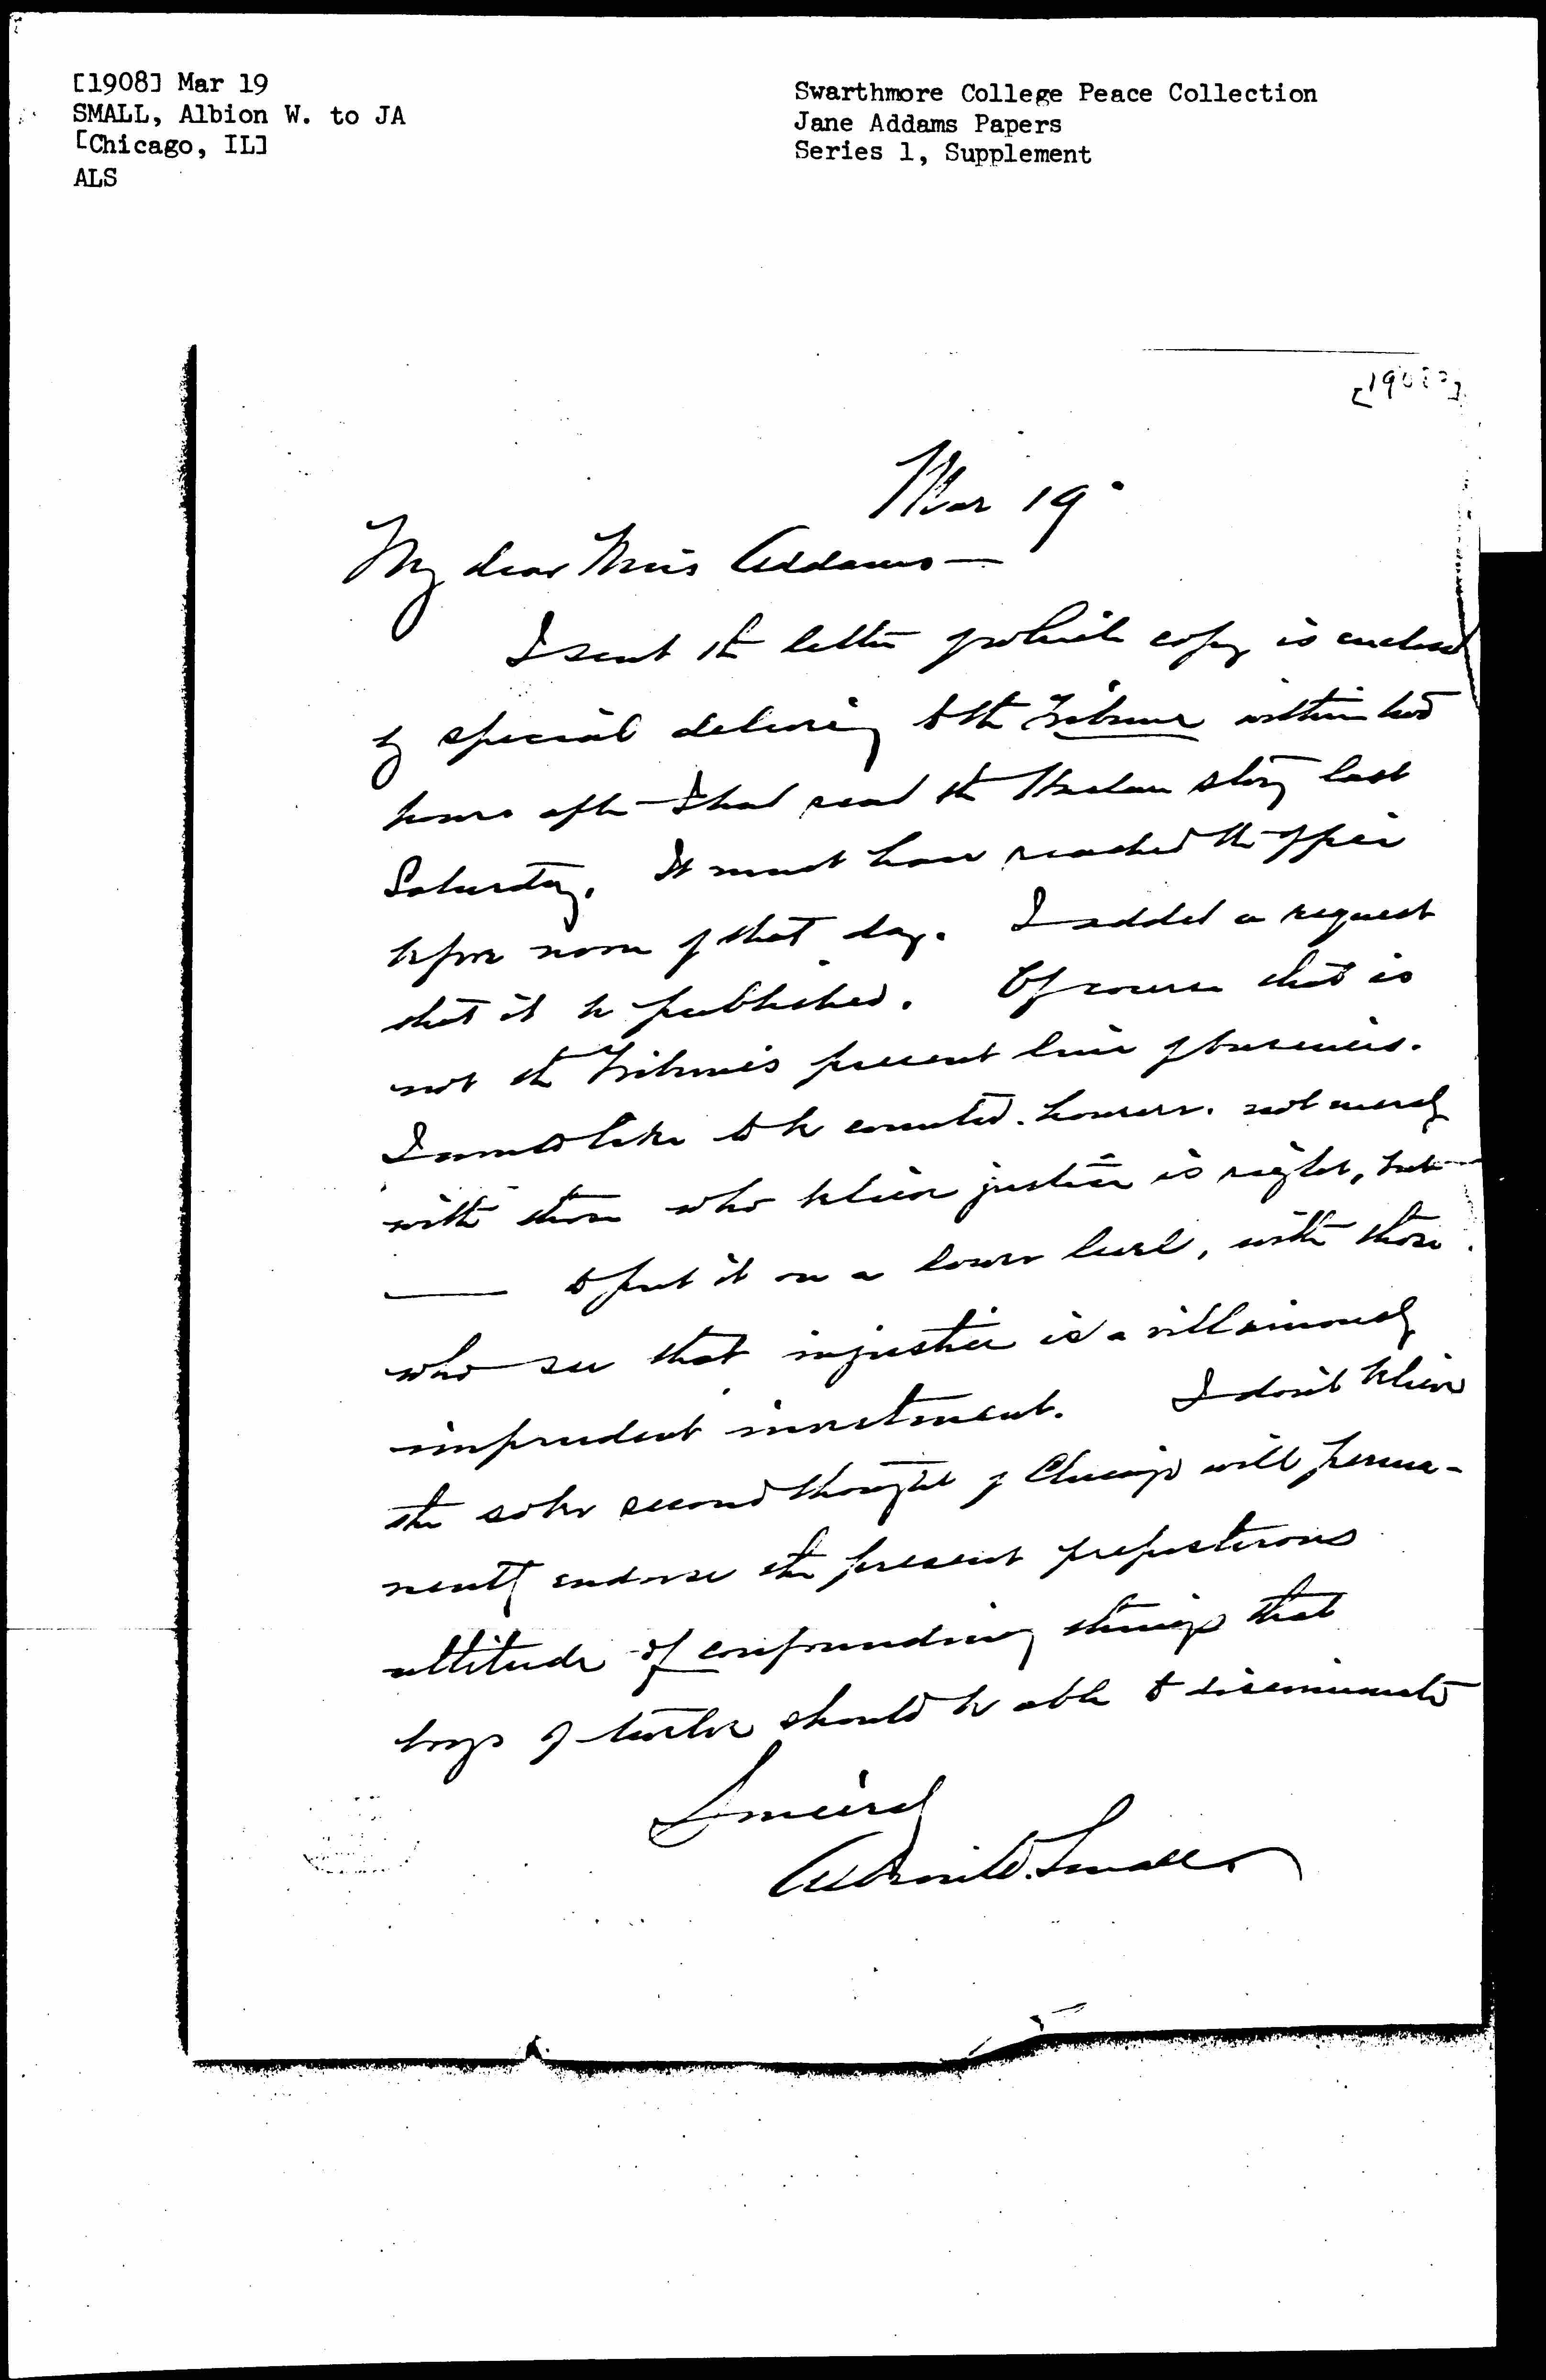 [1908] Mar 19
SMALL, Albion W. to JA
[Chicago, IL]
ALS
Swarthmore College Peace Collection
Jane Addams Papers
Series 1, Supplement
[1908?]
Mar 19.
My dear Miss Addams—
I sent the letter of which copy is enclosed
by special delivery to the Tribune within two
hours after I had read the story last
Saturday. It must have reached the office
before noon of that day. I added a request
that it be published. Of course that is
not the Tribune's present line of business.
I would like to be counted, however, not merely
with those who believe justice is right, but
— to put it on a lower level, with those
who see that injustice is a villainously
imprudent investment. I don't believe
the sober second thought of Chicago will perma-
nently endorse the present preposterous
attitude of confounding things that
boys of twelve should be able to discriminate
Sincerely
Albion W. Small